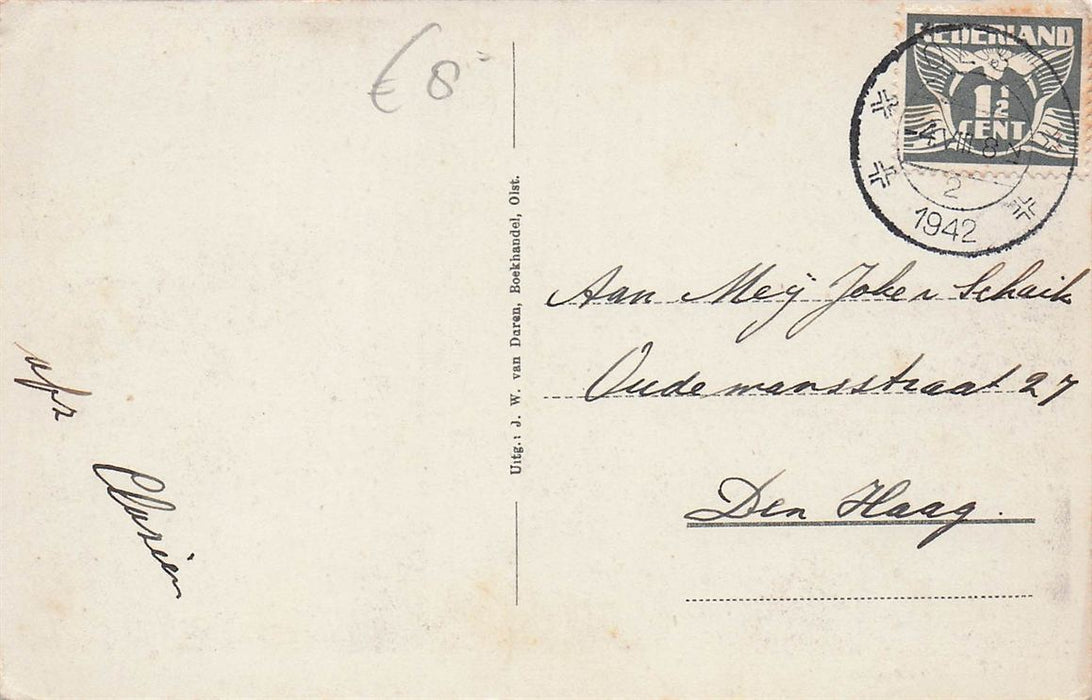 € 8
NEDERLAND
1½
CENT
VIII 8
2
1942
Uitg.: J. W. van Daren, Boekhandel, Olst.
Aan Mej
Oudemansstraat 27
Den Haag.
afz